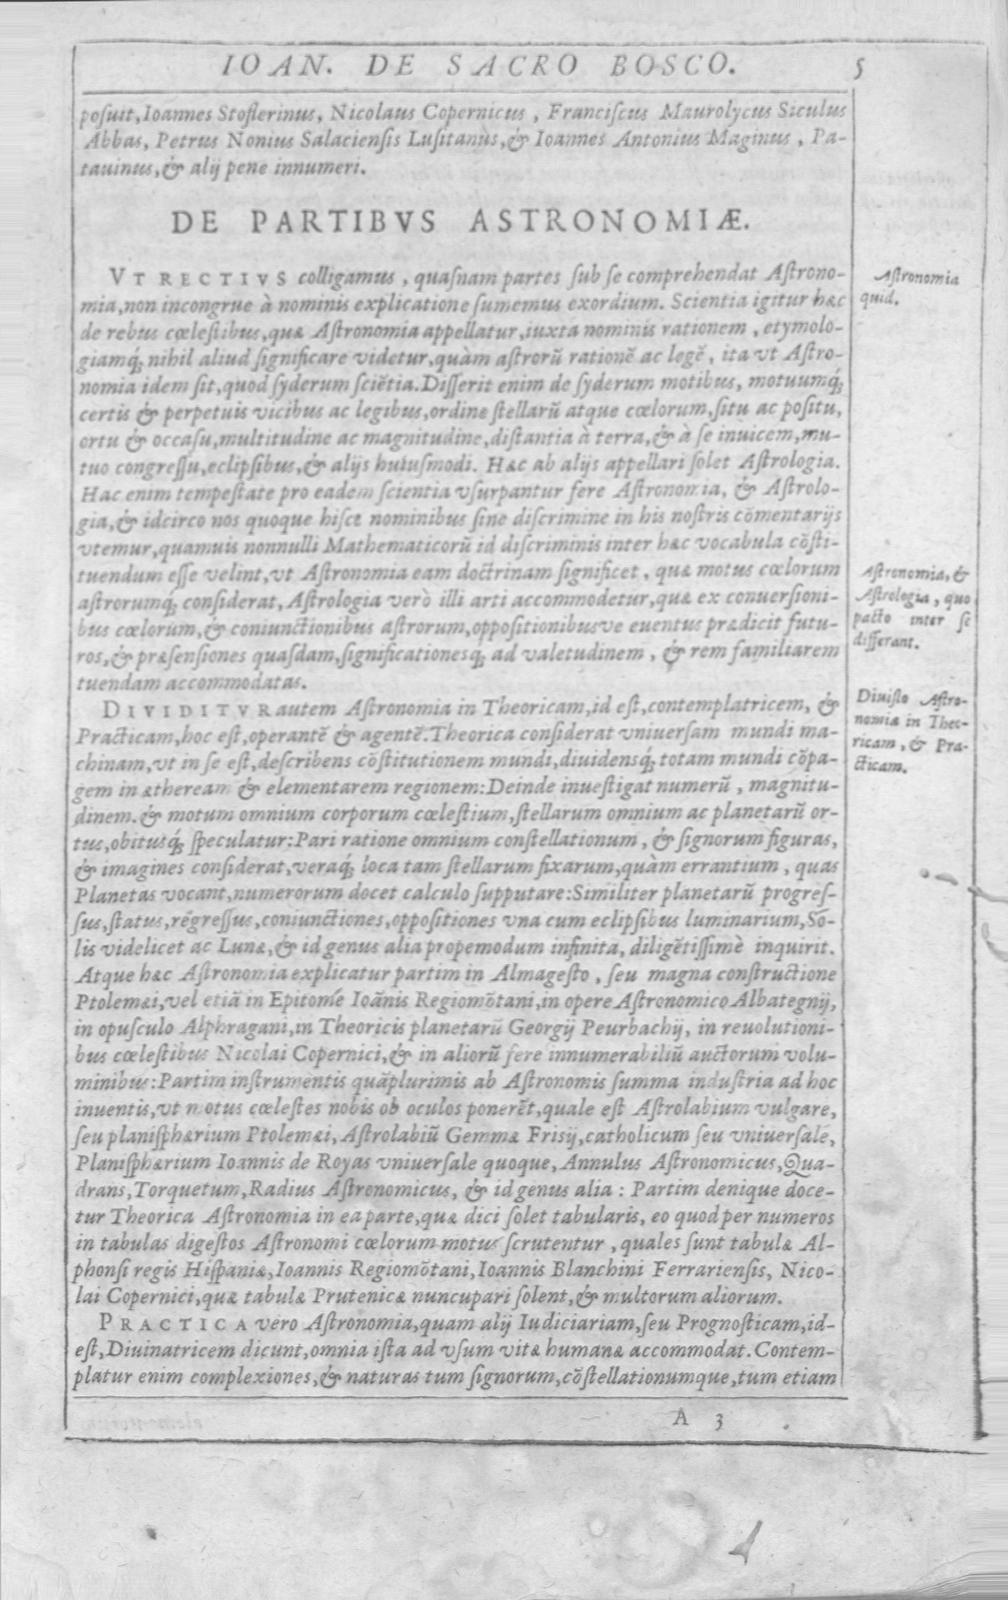 IOAN. DE SACRO BOSCO. 5
posuit, Ioannes Stoflerinus, Nicolaus Copernicus, Franciscus Maurolycus Siculus
Abbas, Petrus Nonius Salaciensis Lusitanus, & Ioannes Antonius Maginus, Pa-
tauinus, & alij pene innumeri.
DE PARTIBVS ASTRONOMIÆ.
VT RECTIVS colligamus, quasnam partes sub se comprehendat Astrono-
mia, non incongrue à nominis explicatione sumemus exordium. Scientia igitur hæc
de rebus cœlestibus, quæ Astronomia appellatur, iuxta nominis rationem, etymolo-
giamq́; nihil aliud significare videtur, quàm astrorū rationē ac legē, ita vt Astro-
nomia idem sit, quod syderum sciētia. Disserit enim de syderum motibus, motuumq́;
certis & perpetuis vicibus ac legibus, ordine stellarū atque cœlorum, situ ac positu,
ortu & occasu, multitudine ac magnitudine, distantia à terra, & à se inuicem, mu-
tuo congressu, eclipsibus, & alijs huiusmodi. Hæc ab alijs appellari solet Astrologia.
Hac enim tempestate pro eadem scientia vsurpantur fere Astronomia, & Astrolo-
gia, & idcirco nos quoque hisce nominibus sine discrimine in his nostris cōmentarijs
vtemur, quamuis nonnulli Mathematicorū id discriminis inter hæc vocabula cōsti-
tuendum esse velint, vt Astronomia eam doctrinam significet, quæ motus cœlorum
astrorumq́; considerat, Astrologia verò illi arti accommodetur, quæ ex conuersioni-
bus cœlorum, & coniunctionibus astrorum, oppositionibusve euentus prædicit futu-
ros, & præsensiones quasdam, significationesq́; ad valetudinem, & rem familiarem
tuendam accommodatas.
DIVIDITVR autem Astronomia in Theoricam, id est, contemplatricem, &
Practicam, hoc est, operantē & agentē. Theorica considerat vniuersam mundi ma-
chinam, vt in se est, describens cōstitutionem mundi, diuidensq́; totam mundi cōpa-
gem in ætheream & elementarem regionem: Deinde inuestigat numerū, magnitu-
dinem. & motum omnium corporum cœlestium, stellarum omnium ac planetarū or-
tus, obitusq́; speculatur: Pari ratione omnium constellationum, & signorum figuras,
& imagines considerat, veraq́; loca tam stellarum fixarum, quàm errantium, quas
Planetas vocant, numerorum docet calculo supputare: Similiter planetarū progres-
sus, status, régressus, coniunctiones, oppositiones vna cum eclipsibus luminarium, So-
lis videlicet ac Lunæ, & id genus alia propemodum infinita, diligētissimè inquirit.
Atque hæc Astronomia explicatur partim in Almagesto, seu magna constructione
Ptolemæi, vel etiā in Epitome Ioānis Regiomōtani, in opere Astronomico Albategnij,
in opusculo Alphragani, in Theoricis planetarū Georgij Peurbachij, in reuolutioni-
bus cœlestibus Nicolai Copernici, & in aliorū fere innumerabiliū auctorum volu-
minibus: Partim instrumentis quāplurimis ab Astronomis summa industria ad hoc
inuentis, vt motus cœlestes nobis ob oculos ponerēt, quale est Astrolabium vulgare,
seu planisphærium Ptolemæi, Astrolabiū Gemmæ Frisij, catholicum seu vniuersale,
Planisphærium Ioannis de Royas vniuersale quoque, Annulus Astronomicus, Qua-
drans, Torquetum, Radius Astronomicus, & id genus alia: Partim denique doce-
tur Theorica Astronomia in ea parte, quæ dici solet tabularis, eo quod per numeros
in tabulas digestos Astronomi cœlorum motus scrutentur, quales sunt tabulæ Al-
phonsi regis Hispaniæ, Ioannis Regiomōtani, Ioannis Blanchini Ferrariensis, Nico-
lai Copernici, quæ tabulæ Prutenicæ nuncupari solent, & multorum aliorum.
PRACTICA vero Astronomia, quam alij Iudiciariam, seu Prognosticam, id-
est, Diuinatricem dicunt, omnia ista ad vsum vitæ humanæ accommodat. Contem-
platur enim complexiones, & naturas tum signorum, cōstellationumque, tum etiam
A 3
Astronomia
quid.
Astronomia, &
Astrologia, quo
pacto inter se
differant.
Diuisio Astro-
nomiæ in Theo-
ricam, & Pra-
cticam.